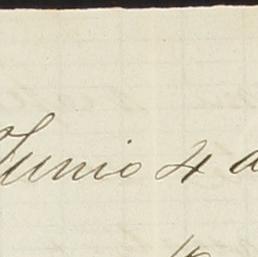 Junio 4 a